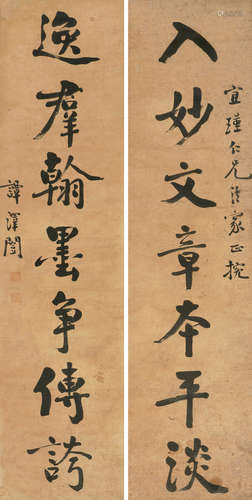 入妙文章本平淡
宜瑾仁兄法家正捥
逸羣翰墨争傳誇
譚澤闓